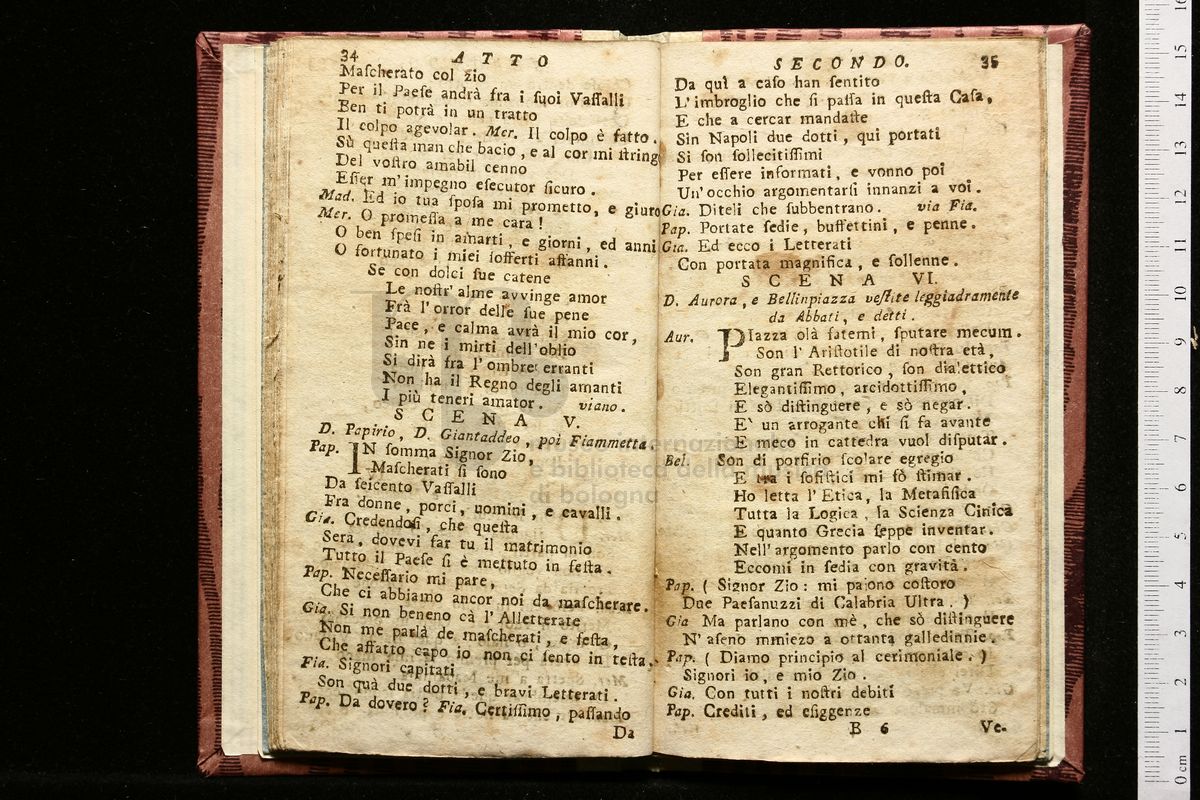 34 ATTO
Maſcherato col zio
Per il Paeſe andrà fra i ſuoi Vaſſalli
Ben ti potrà in un tratto
Il colpo agevolar. Mer. Il colpo è fatto.
Sù queſta man che bacio, e al cor mi ſtring
Del voſtro amabil cenno
Eſſer m'impegno eſecutor ſicuro.
Mad. Ed io tua ſpoſa mi prometto, e giuro
Mer. O promeſſa a me cara!
O ben ſpeſi in amarti, e giorni, ed anni
O fortunato i miei ſofferti affanni.
Se con dolci ſue catene
Le noſtr' alme avvinge amor
Frà l'orror delle ſue pene
Pace, e calma avrà il mio cor,
Sin ne i mirti dell'oblio
Si dirà fra l'ombre erranti
Non ha il Regno degli amanti
I più teneri amator. viano.
SCENA V.
D. Papirio, D. Giantaddeo, poi Fiammetta.
Pap. IN ſomma Signor Zio,
Maſcherati ſi ſono
Da ſeicento Vaſſalli
Fra donne, porci, uomini, e cavalli.
Gia. Credendoſi, che queſta
Sera, dovevi far tu il matrimonio
Tutto il Paeſe ſi è mettuto in feſta.
Pap. Neceſſario mi pare,
Che ci abbiamo ancor noi da maſcherare.
Gia. Si non beneno cà l'Alletterate
Non me parlà de maſcherati, e feſta,
Che affatto capo io non ci ſento in teſta.
Fia. Signori capitati
Son quà due dotti, e bravi Letterati.
Pap. Da dovero? Fia. Certiſſimo, paſſando
Da
SECONDO. 35
Da quì a caſo han ſentito
L'imbroglio che ſi paſſa in queſta Caſa,
E che a cercar mandaſte
Sin Napoli due dotti, qui portati
Si ſon ſollecitiſſimi
Per eſſere informati, e vonno poi
Un'occhio argomentarſi innanzi a voi.
Gia. Diteli che ſubbentrano. via Fia.
Pap. Portate ſedie, buffettini, e penne.
Gia. Ed ecco i Letterati
Con portata magnifica, e ſollenne.
SCENA VI.
D. Aurora, e Bellinpiazza veſtite leggiadramente
da Abbati, e detti.
Aur. PIazza olà fatemi, ſputare mecum.
Son l'Ariſtotile di noſtra età,
Son gran Rettorico, ſon dialettico
Elegantiſſimo, arcidottiſſimo,
E sò diſtinguere, e sò negar.
E' un arrogante chi ſi fa avante
E meco in cattedra vuol diſputar.
Bel. Son di porfirio ſcolare egregio
E tra i ſofiſtici mi fò ſtimar.
Ho letta l'Etica, la Metafiſica
Tutta la Logica, la Scienza Cinica
E quanto Grecia ſeppe inventar.
Nell'argomento parlo con cento
Eccomi in ſedia con gravità.
Pap. ( Signor Zio: mi pajono coſtoro
Due Paeſanuzzi di Calabria Ultra. )
Gia Ma parlano con mè, che sò diſtinguere
N'aſeno mmiezo a ottanta galledinnie.
Pap. ( Diamo principio al cerimoniale. )
Signori io, e mio Zio.
Gia. Con tutti i noſtri debiti
Pap. Crediti, ed eſiggenze
B 6 Ve-